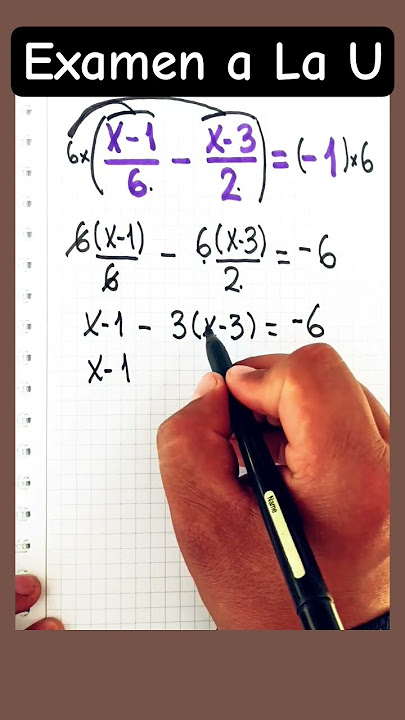 Examen a La U
6x(x-1/6 - x-3/2) = (-1)x6
6(x-1)/6 - 6(x-3)/2 = -6
x-1 - 3(x-3) = -6
x-1
Name